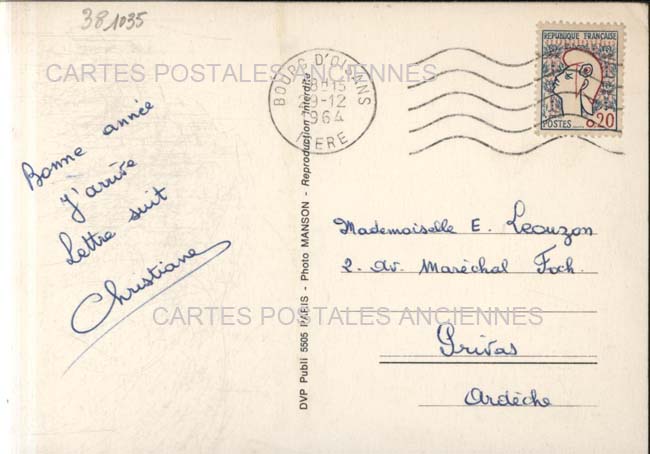 38,1035
CARTES POSTALES ANCIENNES
Bonne année
J'arrive
Lettre suit
Christiane
DVP Publi 5505 PARIS - Photo MANSON - Reproduction Interdite
BOURG D'OISANS
18H15
29-12
1964
ISERE
REPUBLIQUE FRANÇAISE
POSTES
0,20
Mademoiselle E. Leouzon
2. Av. Maréchal Foch.
CARTES POSTALES ANCIENNES
Privas
Ardèche